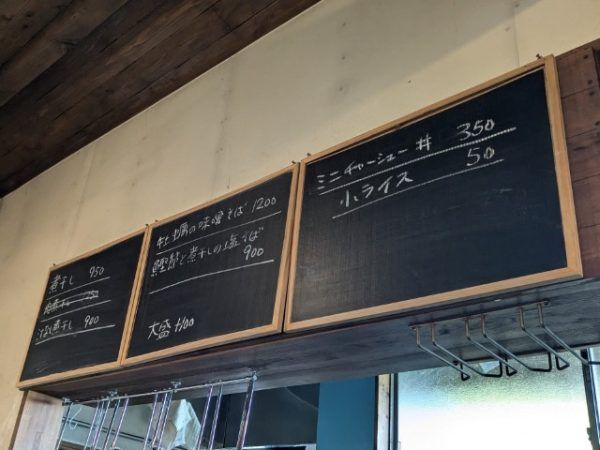 煮干し 950
汁なし煮干し 900
牡蠣の味噌そば 1200
鰹節と煮干しの塩そば
900
大盛 +100
ミニチャーシュー丼 350
小ライス 50